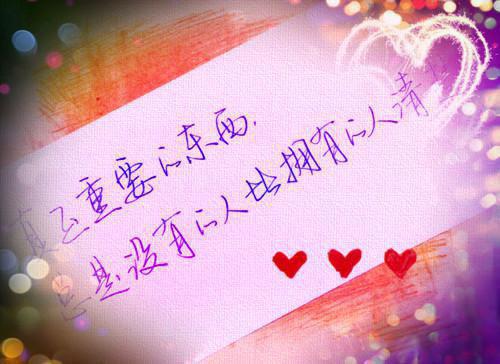 真正重要的东西.
总是没有的人比拥有的人清